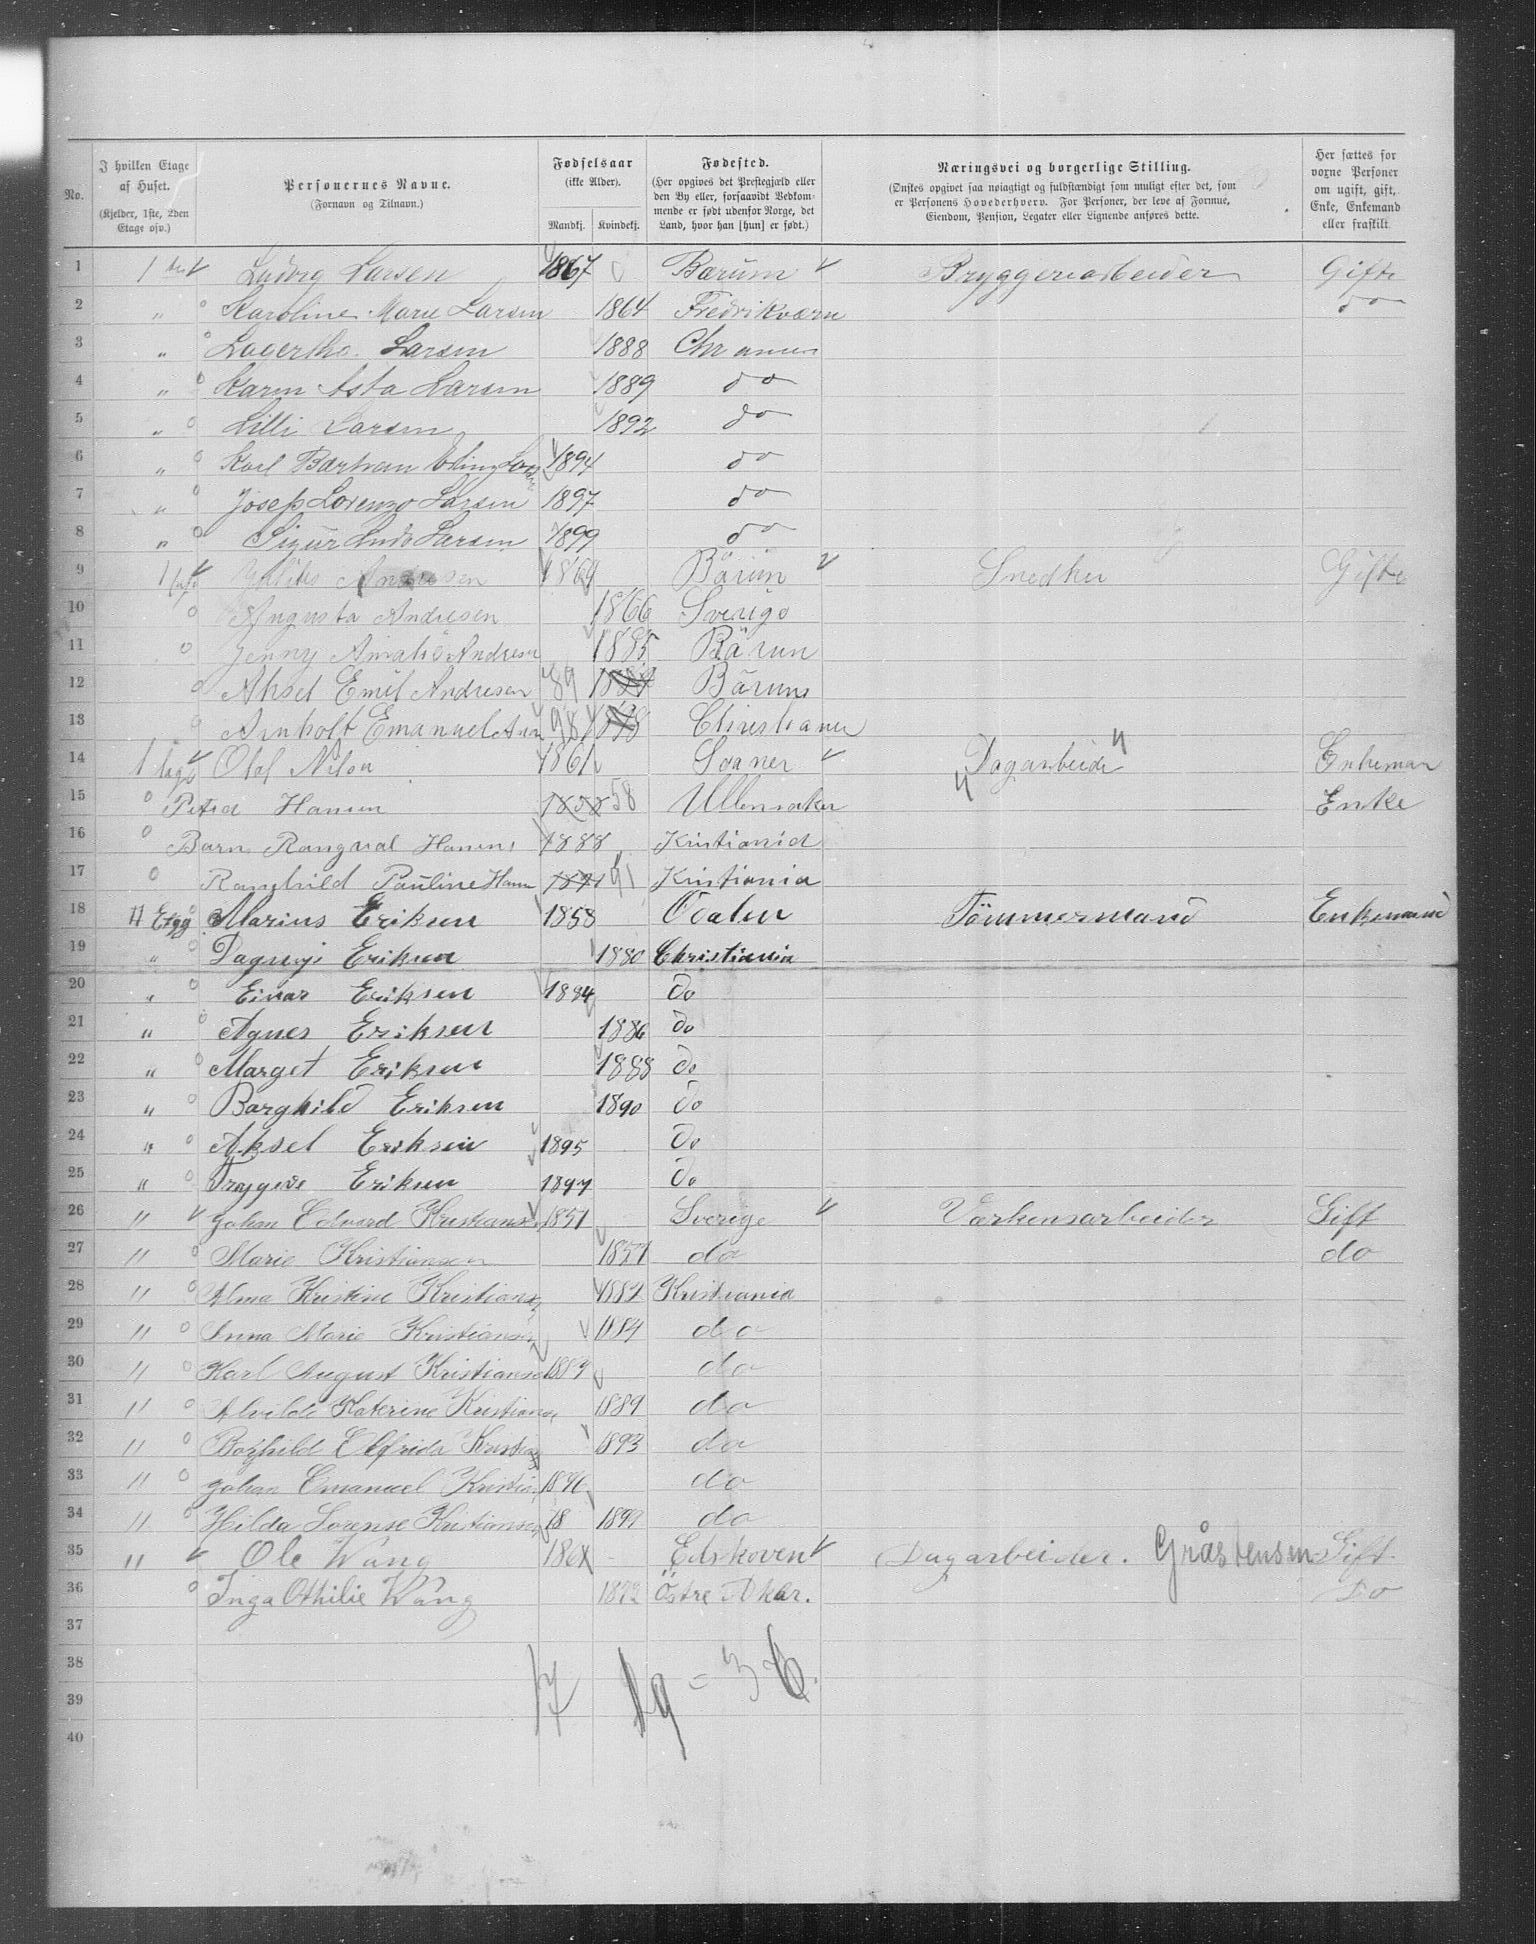 No.
I hvilken Etage af Huset. (Kjelder, 1ste, 2den Etage osv.)
Personernes Navne. (Fornavn og Tilnavn.)
Fødselsaar (ikke Alder). Mandkj. Kvindekj.
Fødested. (Her opgives det Prestegjæld eller den By eller, forsaavidt Vedkommende er født udenfor Norge, det Land, hvor han [hun] er født.)
Næringsvei og borgerlige Stilling. (Ønskes opgivet saa nøiagtigt og fuldstændigt som muligt efter det, som er Personens Hovederhverv. For Personer, der leve af Formue, Eiendom, Pension, Legater eller Lignende anføres dette.
Her sættes for voxne Personer om ugift, gift, Enke, Enkemand eller fraskilt
1 1 Ludvig Larsen 1867 Bærum Bryggeriarbeider Gift
2 " Karoline Marie Larsen 1864 Fredriksværn do
3 " Lagertha Larsen 1888
4 " Karin Asta Larsen 1889 do
5 " Lilli Larsen 1892 do
6 " Karl Bartram 1894 do
7 " Josep Lorenzo Larsen 1897 do
8 " Sigur Ludv Larsen 1899 do
9 1 Julius Andresen 1864 Bärum Snedker Gift
10 Augusta Andresen 1866 Sverige
11 Jenny Amalie Andresen 1885 Bärum
12 Aksel Emil Andresen 89 Bärum
13 Arnholt Emanuel 98 Christiania
14 1 Olof Nilson 1861 Dagarbeider Enkeman
15 Petra Hansen 1858 58 Ullensaker Enke
16 Barn Rangval Hansen 1888 Kristiania
17 Ranghild Pauline Hansen 1891 91 Kristiania
18 II Etg Marius Eriksen 1858 Odalen Tömmermand Enkemand
19 " Dagny Eriksen 1880 Christiania
20 " Einar Eriksen 1884 do
21 " Agnes Eriksen 1886 do
22 " Marget Eriksen 1888 do
23 " Borghild Eriksen 1890 do
24 " Aksel Eriksen 1895 do
25 " Trygve Eriksen 1897 do
26 " Johan Edvard Kristiansen 1851 Sverige Værkensarbeider Gift
27 " Marie Kristiansen 1857 do do
28 " Alma Kristine Kristiansen 1882 Kristiania
29 " Anna Marie Kristiansen 1884 do
30 " Karl August Kristiansen 1887 do
31 " Alvilde Katerine Kristiansen 1889 do
32 " Borghild Elfrida Kristian 1893 do
33 " Johan Emanuel Kristian 1896 do
34 " Hilda Lorense Kristiansen 18 1899 do
35 " Ole Wang Eidskoven Dagarbeider. Gråstensm Gift
36 Inga Othilie Wang 1872 Östre Aker. Do
37
38 17 19 = 36.
39
40